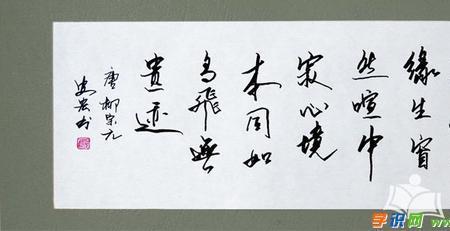 緣生窅
然喧中
寂心境
本同如
鸟飛無
遺迹
唐柳宗元
学识网